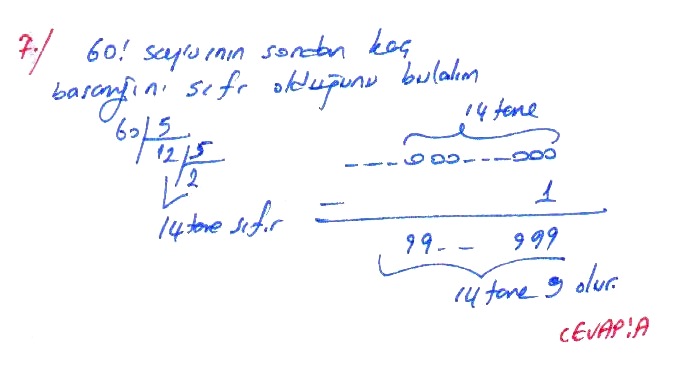 7./ 60! sayısının sondan kaç
basamağını sıfır olduğunu bulalım
60 | 5
12 | 5
2
14 tane sıfır
14 tane
---000---000
- 1
99-- 999
14 tane 9 olur.
CEVAP:A